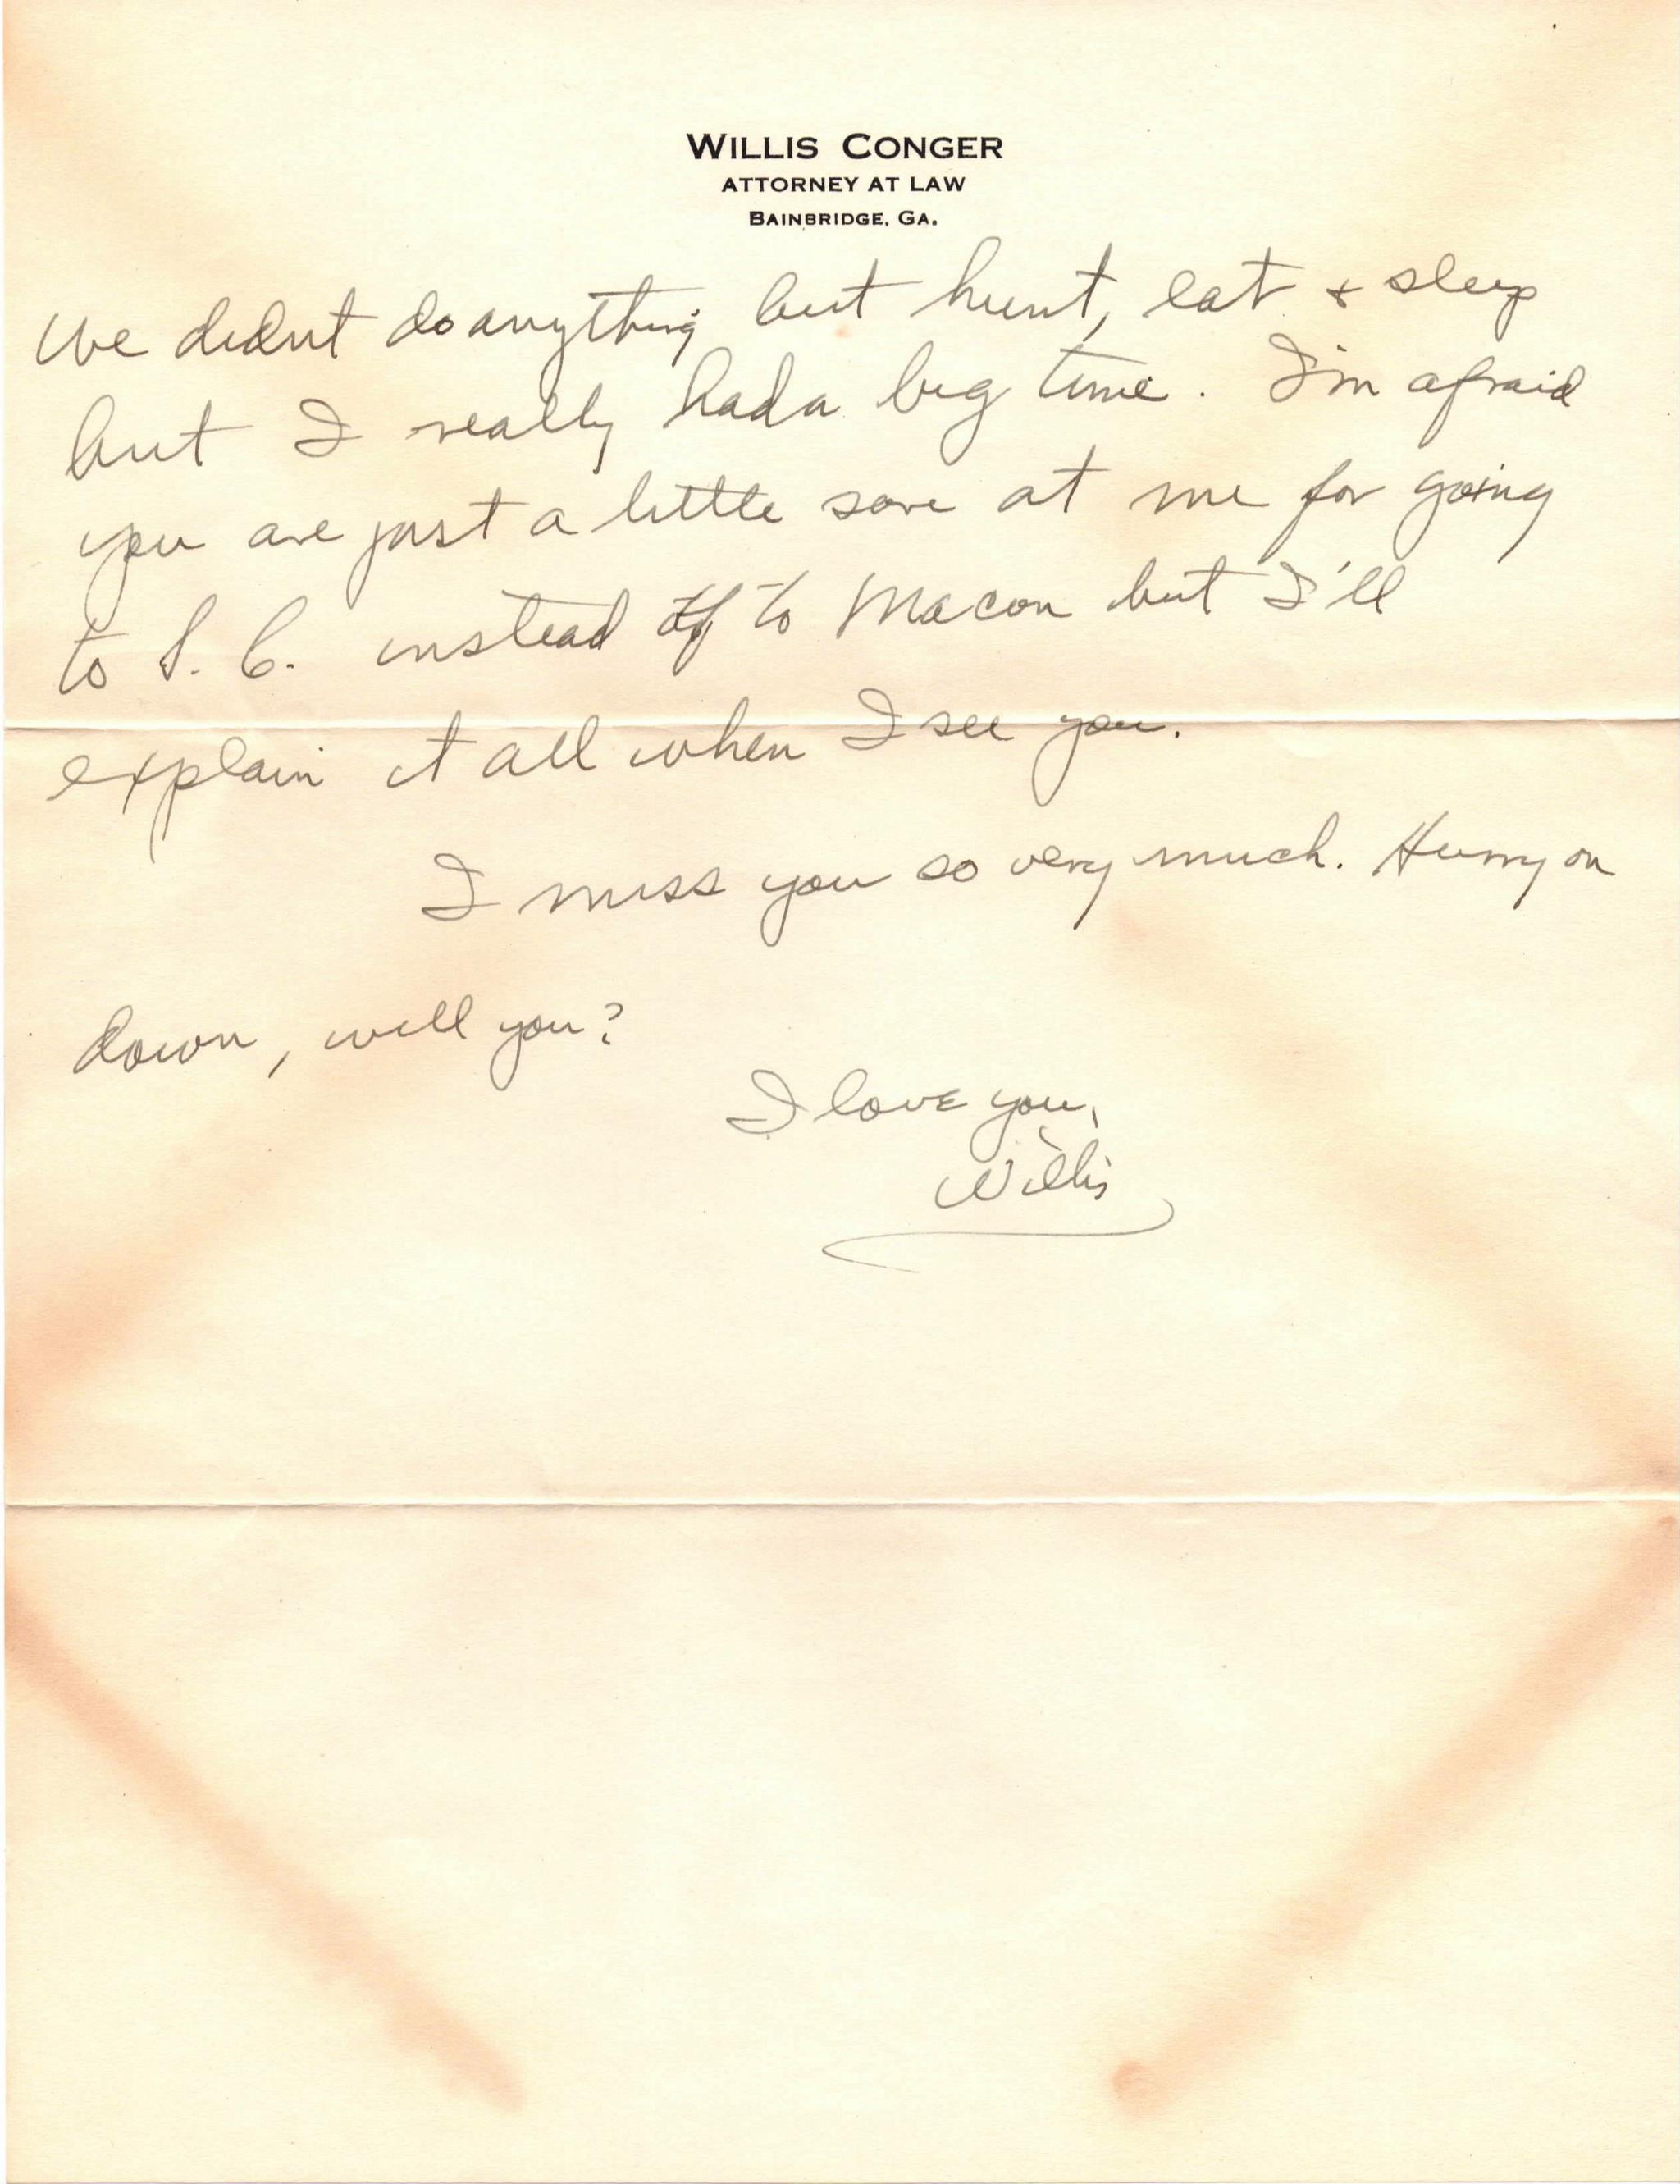 WILLIS CONGER
ATTORNEY AT LAW
BAINBRIDGE, GA.
We didnt do anything but hunt, eat + sleep
but I really had a big time. I'm afraid
you are just a little sore at me for going
to S. C. instead of to Macon but I'll
explain it all when I see you.
I miss you so very much. Hurry on
down, will you?
I love you,
Willis